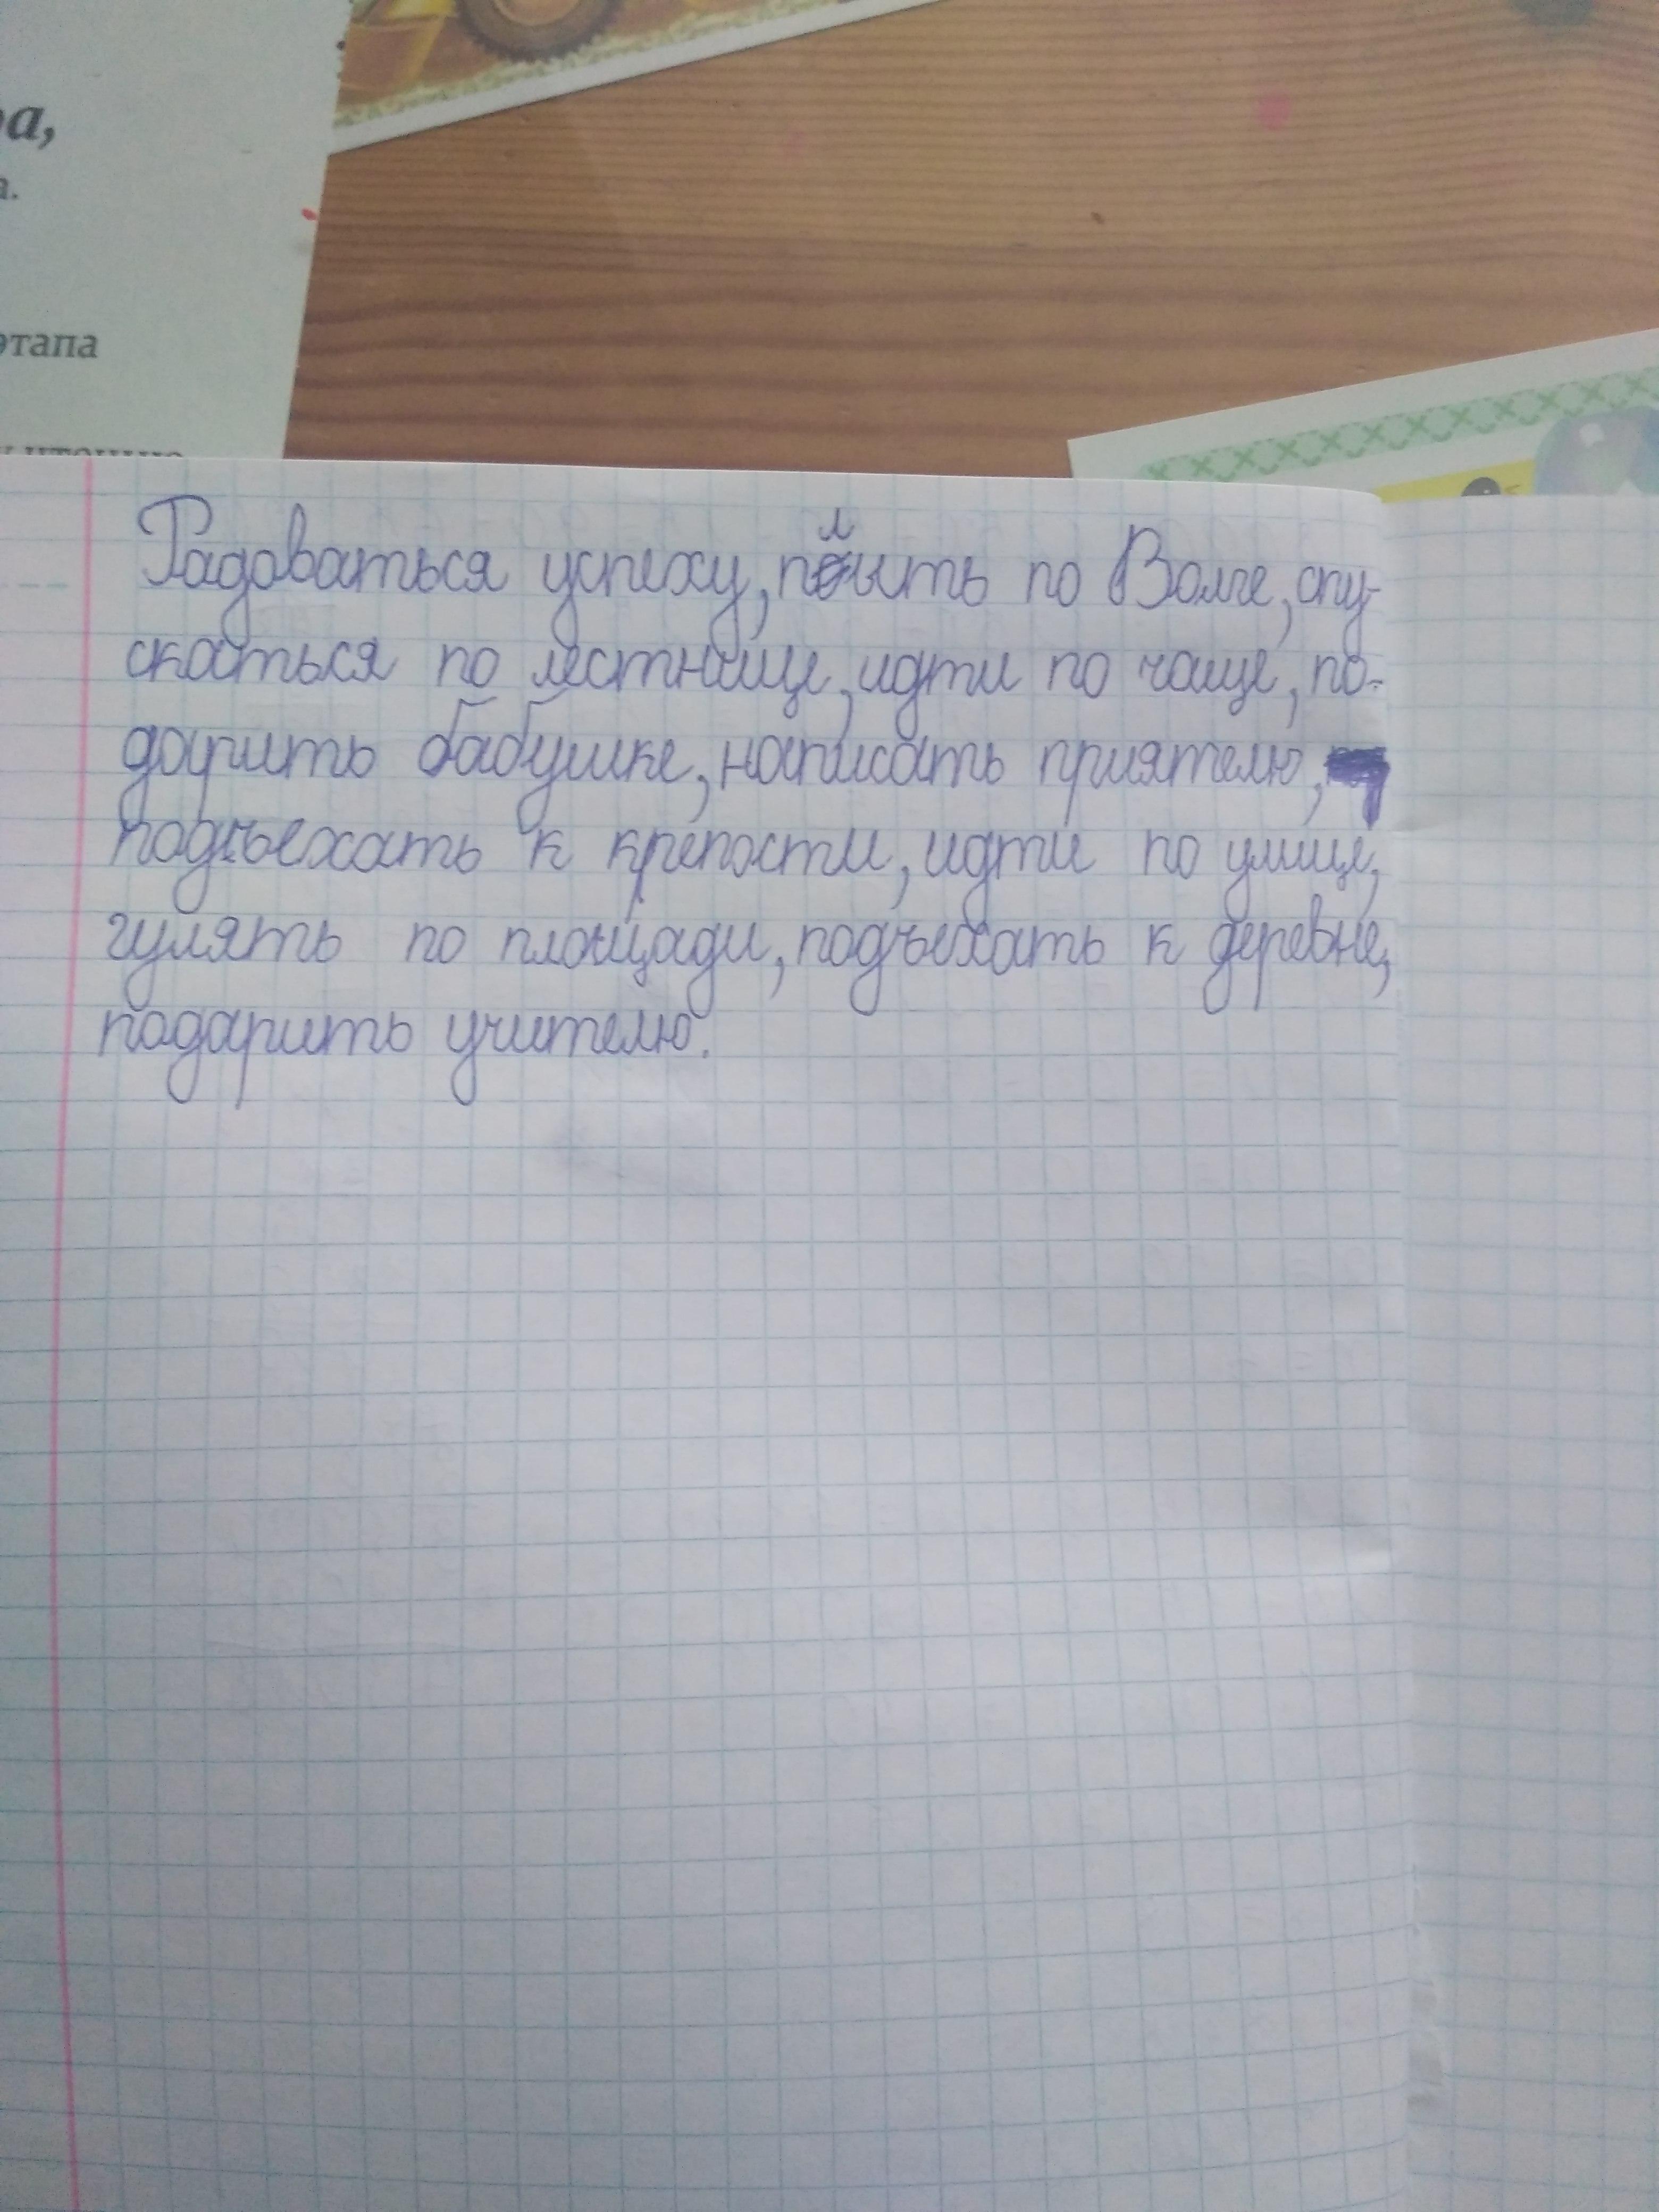 ра,
а.
этапа
чтению
Радоваться успеху, плыть по Волге, спу-
скаться по лестнице, идти по чаще, по-
дарить бабушке, написать приятелю,
подъехать к крепости, идти по улице,
гулять по площади, подъехать к деревне,
подарить учителю.